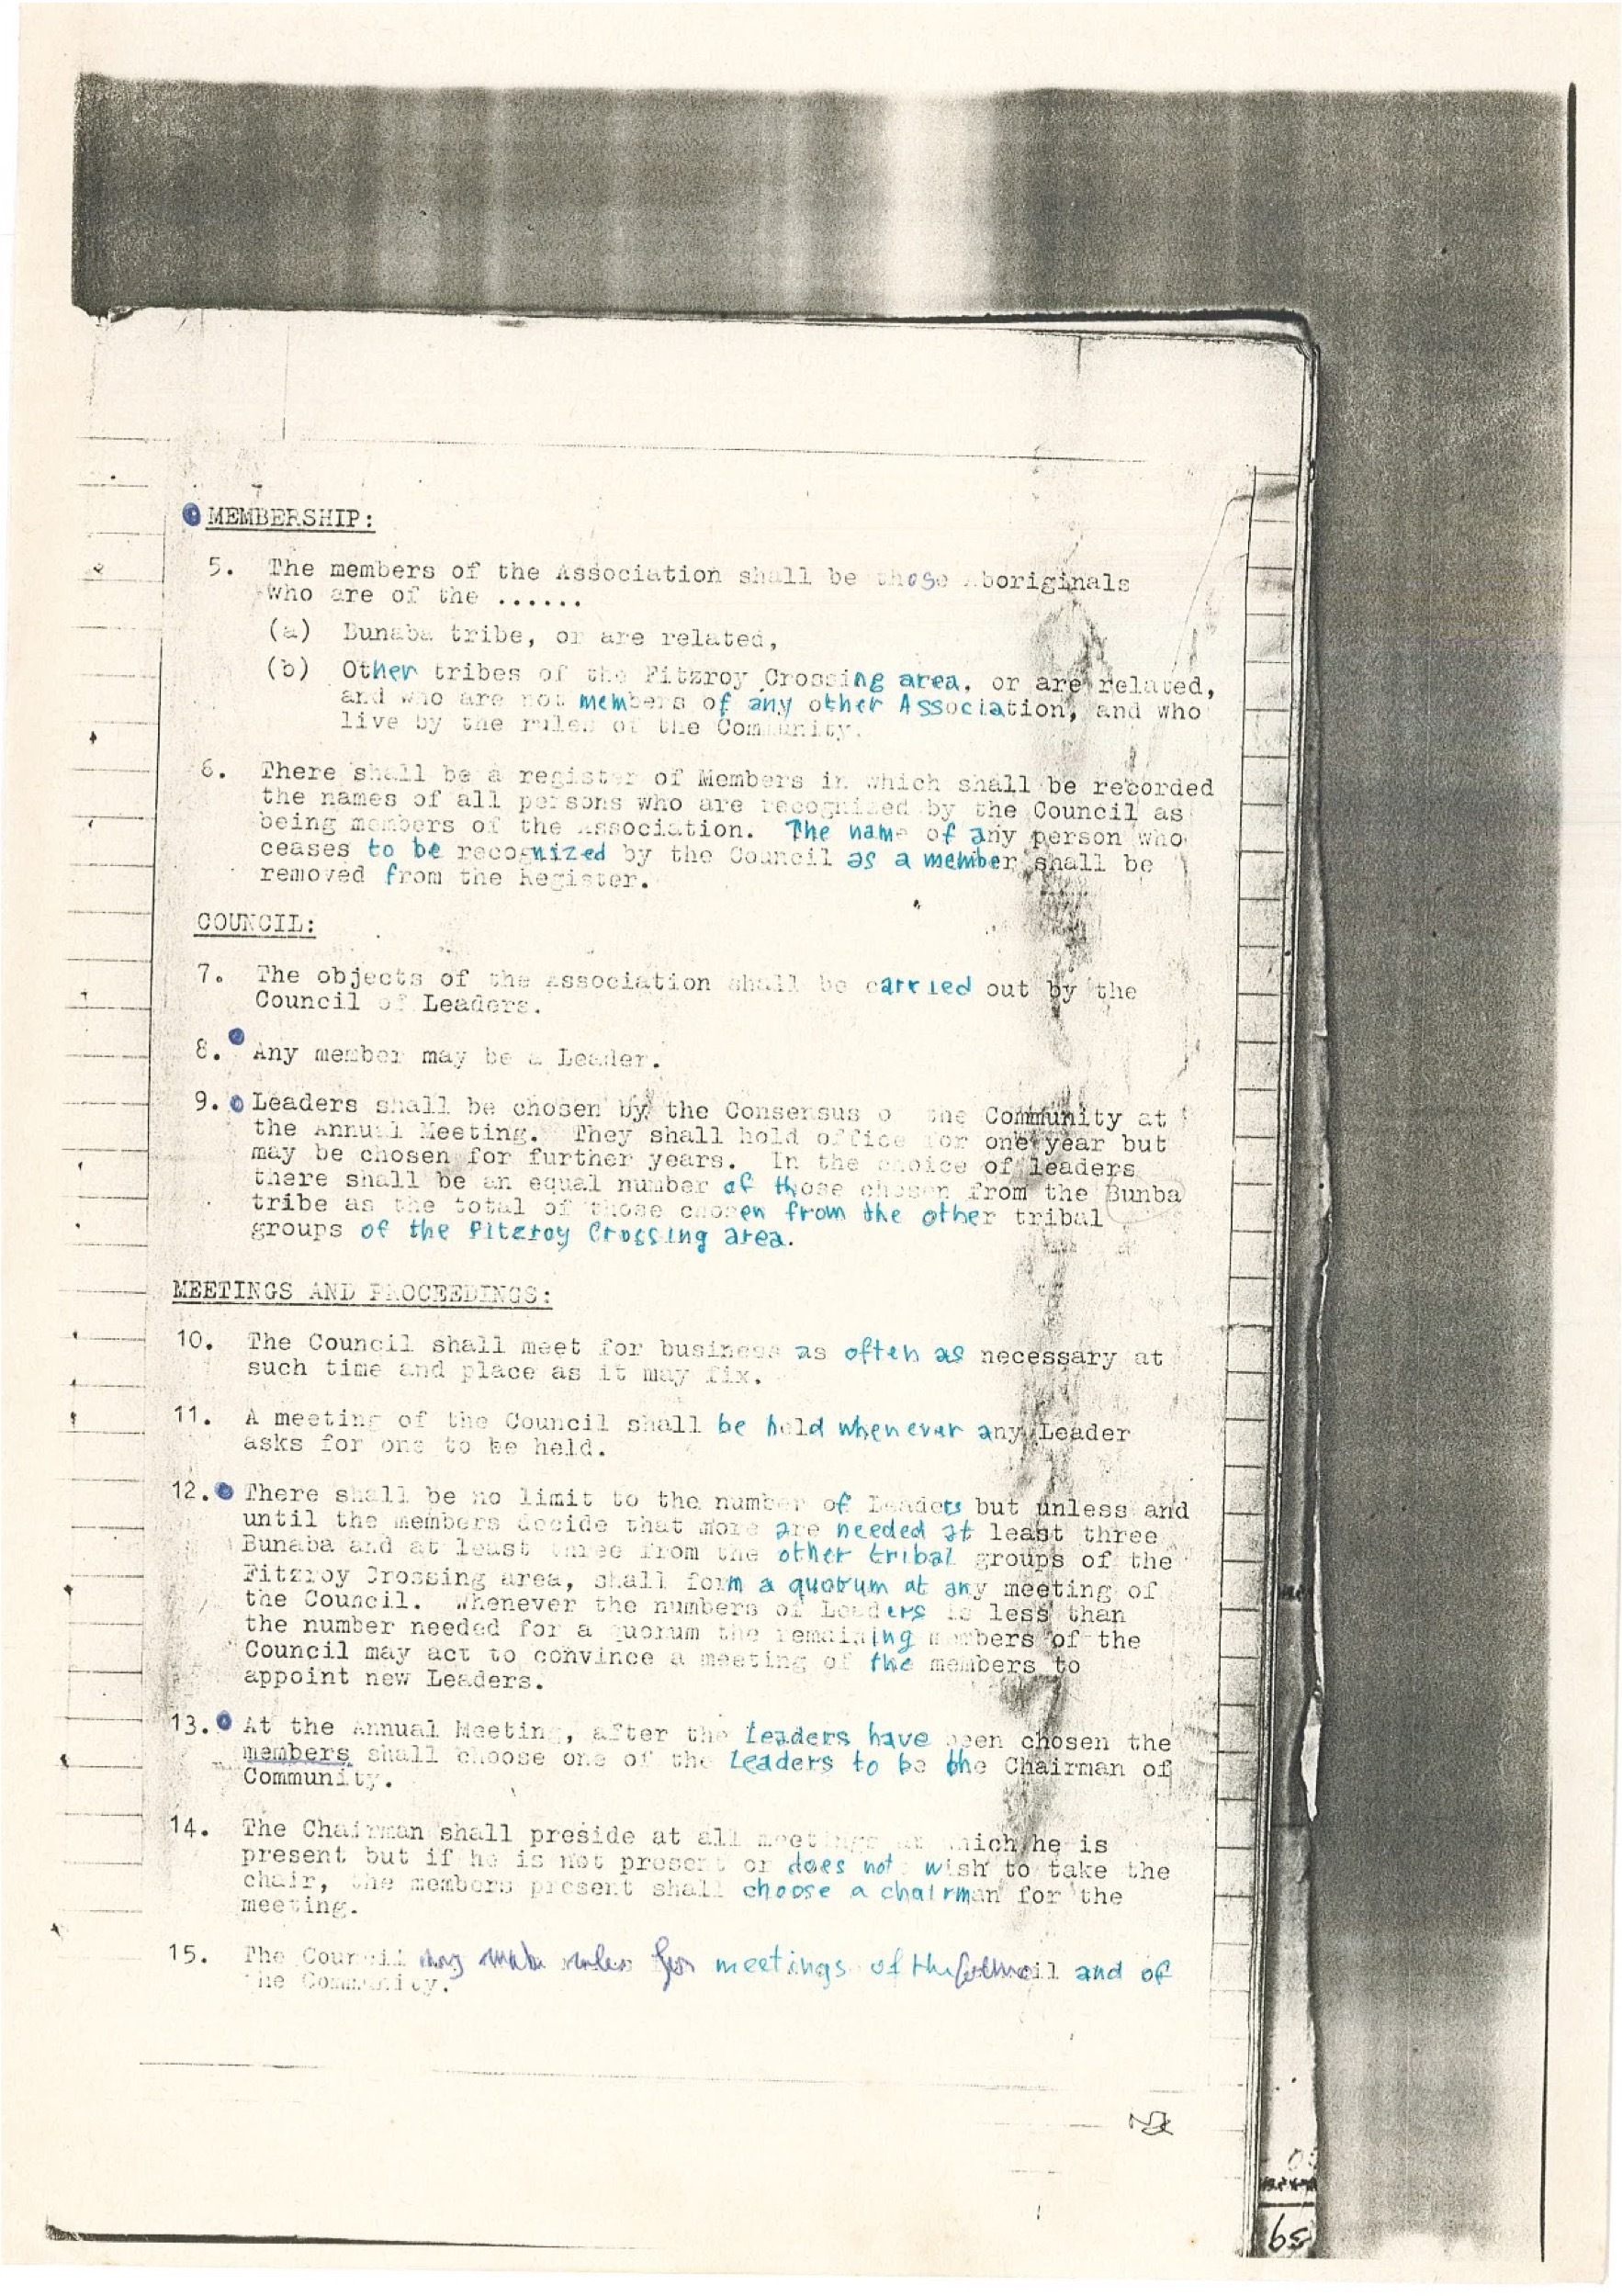 MEMBERSHIP:
5. The members of the Association shall be those Aboriginals
who are of the ......
(a) Bunaba tribe, or are related,
(b) Other tribes of the Fitzroy Crossing area, or are related,
and who are not members of any other Association, and who
live by the rules of the Community.
6. There shall be a register of Members in which shall be recorded
the names of all persons who are recognized by the Council as
being members of the Association. The name of any person who
ceases to be recognized by the Council as a member shall be
removed from the Register.
COUNCIL:
7. The objects of the Association shall be carried out by the
Council of Leaders.
8. Any member may be a Leader.
9. Leaders shall be chosen by the Consensus of the Community at
the Annual Meeting. They shall hold office for one year but
may be chosen for further years. In the choice of leaders
there shall be an equal number of those chosen from the Bunba
tribe as the total of those chosen from the other tribal
groups of the Fitzroy Crossing area.
MEETINGS AND PROCEEDINGS:
10. The Council shall meet for business as often as necessary at
such time and place as it may fix.
11. A meeting of the Council shall be held whenever any Leader
asks for one to be held.
12. There shall be no limit to the number of Leaders but unless and
until the members decide that more are needed at least three
Bunaba and at least three from the other tribal groups of the
Fitzroy Crossing area, shall form a quorum at any meeting of
the Council. Whenever the numbers of Leaders is less than
the number needed for a quorum the remaining members of the
Council may act to convince a meeting of the members to
appoint new Leaders.
13. At the Annual Meeting, after the Leaders have been chosen the
members shall choose one of the Leaders to be the Chairman of
Community.
14. The Chairman shall preside at all meetings at which he is
present but if he is not present or does not wish to take the
chair, the members present shall choose a chairman for the
meeting.
15. The Council may make rules for meetings of the Council and of
the Community.
65